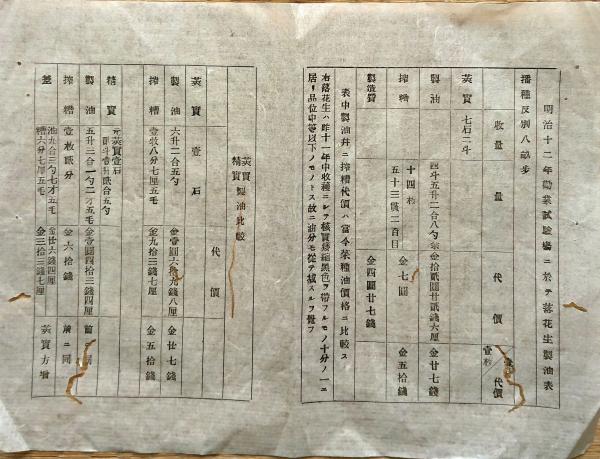 明治十二年勸業試驗場ニ於テ落花生製油表
播種反別八畝歩
收量 量 代價 壹枚 代價
莢實 七石二斗
製油 四斗五升二合八勺 金拾貳圓廿貳錢六厘 金廿七錢
搾糟 十四枚 五十三貫二百目 金七圓 金五拾錢
製造費 金四圓廿七錢
表中製油并ニ搾糟代價ハ當今菜種油價格ニ比較ス
右落花生ハ昨十一年中收穫ニシテ核實萎縮黑色ヲ帶フルモノ十分ノ一ニ
居リ品位中等以下ノモノトス故ニ油分モ從テ減スル
莢實 精實 製油比較
代價
莢實 壹石
製油 六升二合五勺 金壹圓六拾九錢八厘 金廿七錢
搾糟 壹枚八分七厘五毛 金九拾三錢七厘 金五拾錢
精實 元莢實壹石
製油 五升三合一勺二才五毛 金壹圓四拾三錢四厘 前同
搾糟 壹枚貳分 金六拾錢 前ニ同
差 油九合三勺七才五毛 糟六分七厘五毛 金廿六錢四厘 金三拾三錢七厘 莢實方增